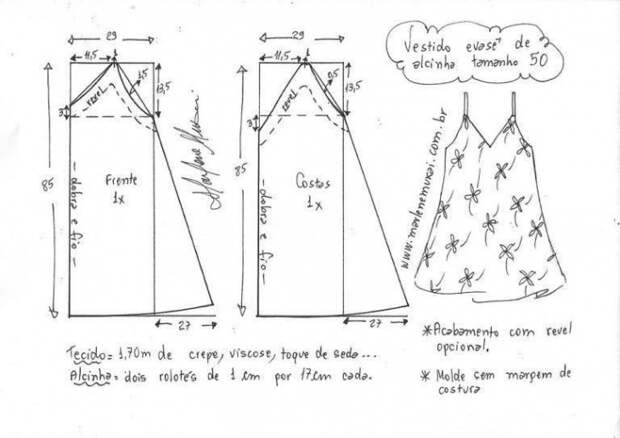 Vestido evasê de
alcinha tamanho 50
29
11,5
1
1,5
13,5
revel
3
85
Frente
1x
-dobra e fio-
27
Marlene Mukai
29
11,5
1
0,5
13,5
revel
3
85
Costas
1x
-dobra e fio-
27
www.marlenemukai.com.br
*Acabamento com revel
opcional.
* Molde sem margem de
costura
Tecido= 1,70m de crepe, viscose, toque de seda...
Alcinha= dois rolotês de 1 cm por 17cm cada.